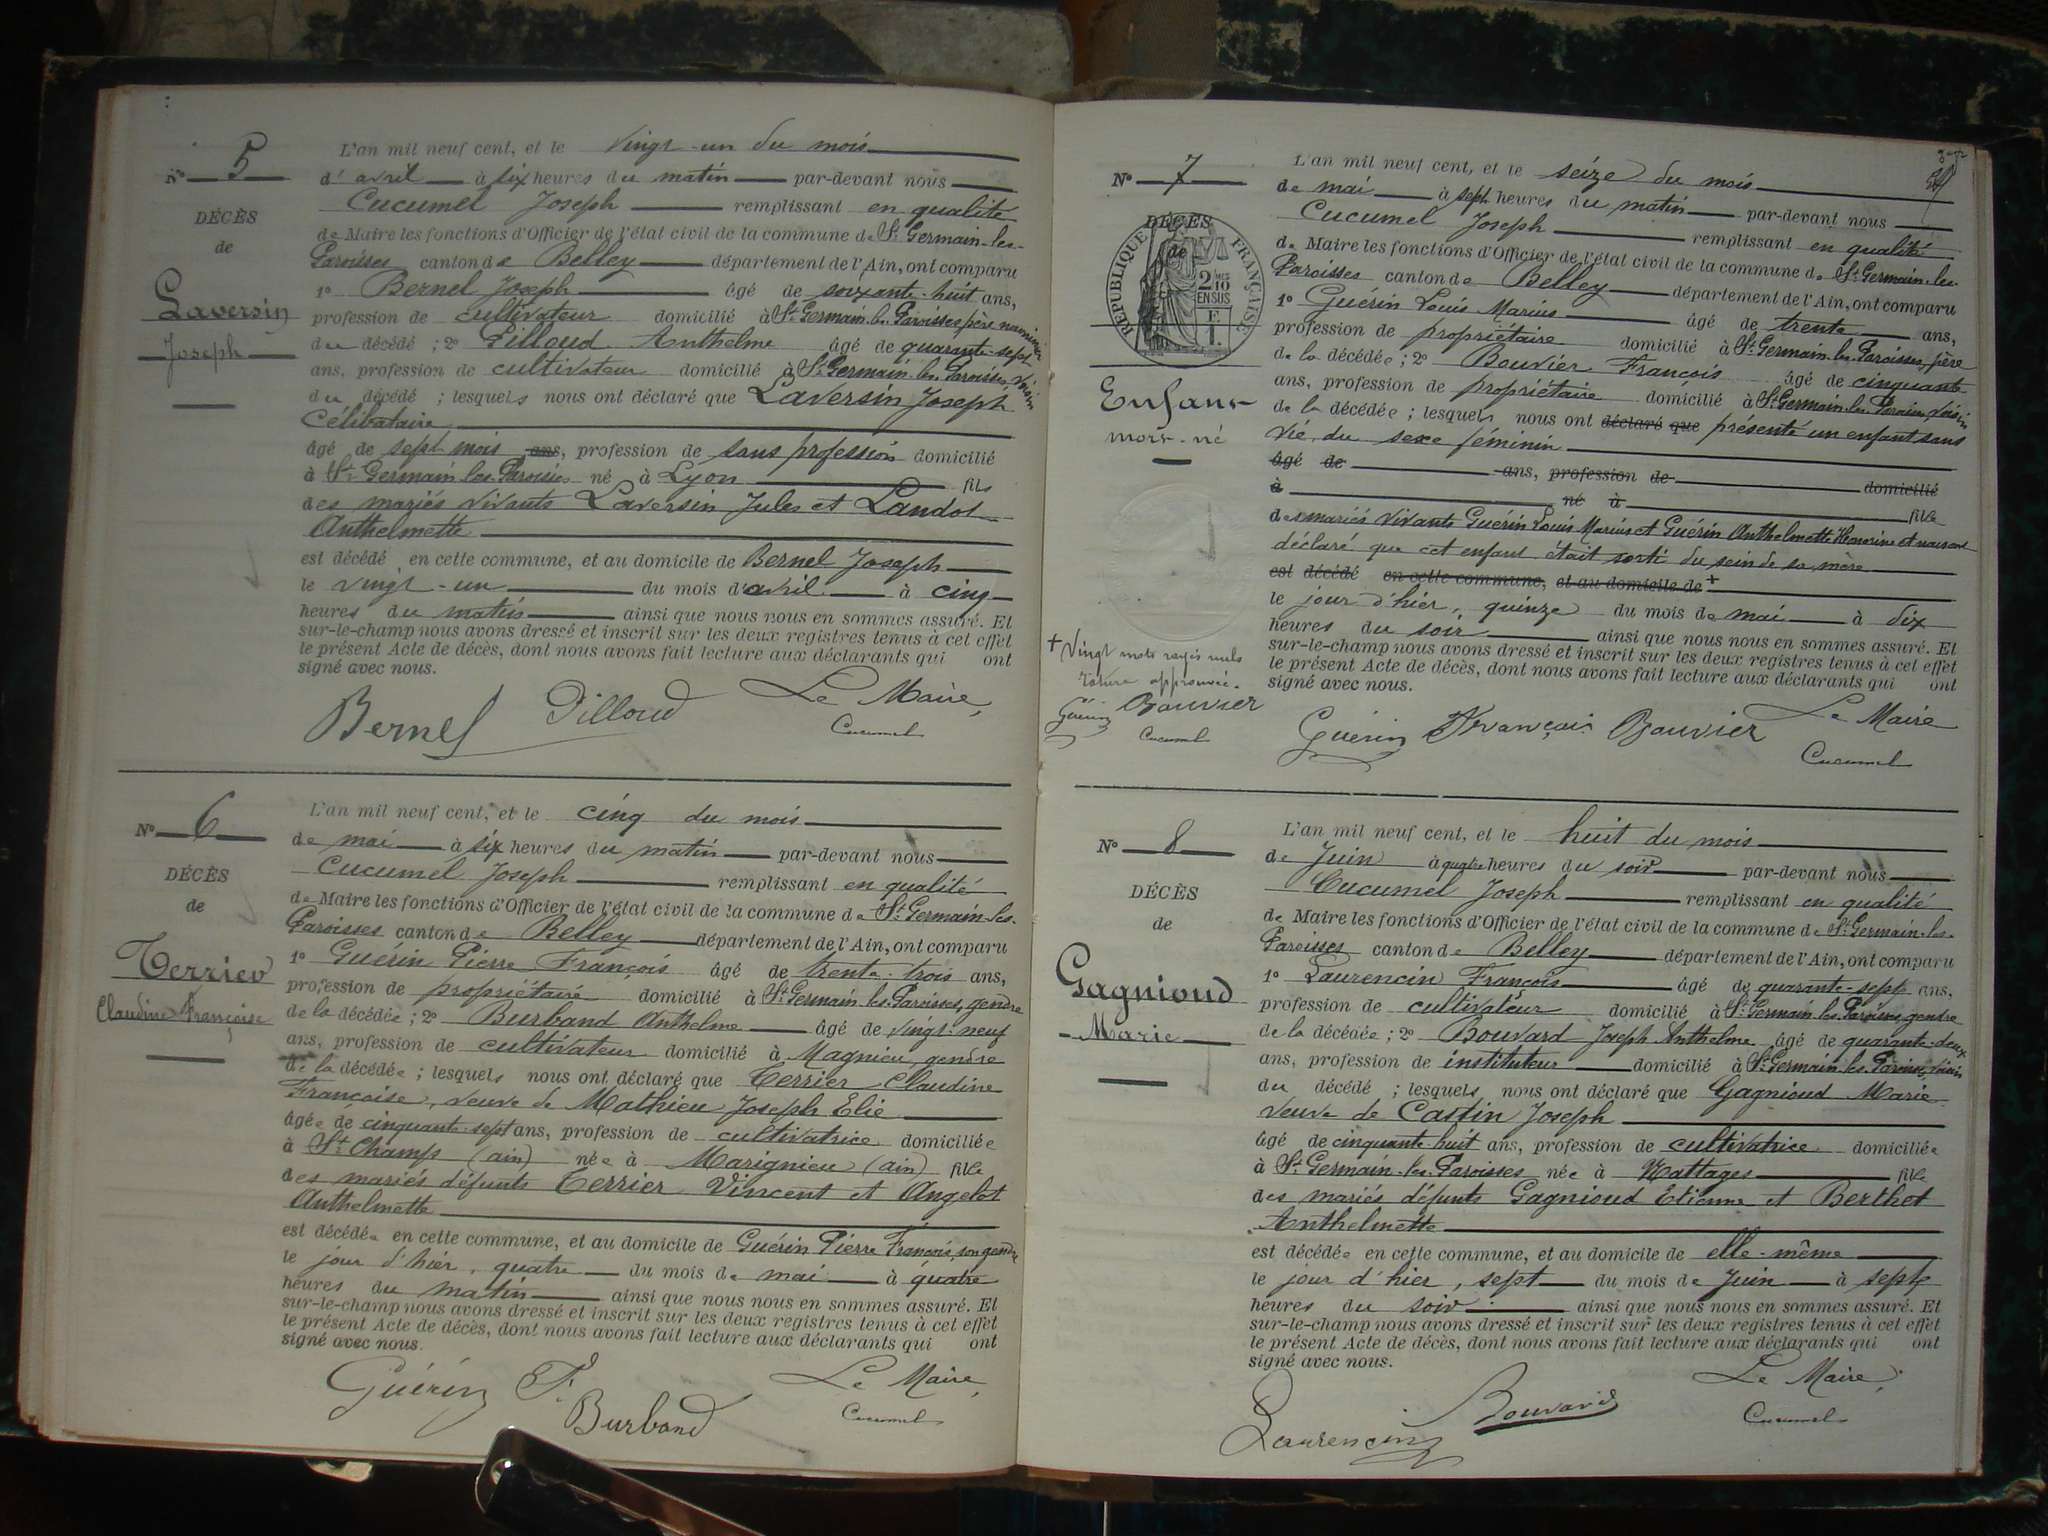 N° 5
DÉCÈS
de
Laversin
Joseph
L'an mil neuf cent, et le vingt-un du mois
d'avril à six heures du matin par-devant nous
Cucumel Joseph remplissant en qualité
de Maire les fonctions d'Officier de l'état civil de la commune de St Germain-les-
Paroisses canton de Belley département de l'Ain, ont comparu
1° Bernel Joseph âgé de soixante-huit ans,
profession de cultivateur domicilié à St Germain-les-Paroisses, père nourricier
du décédé ; 2° Pilloud Anthelme âgé de quarante-sept
ans, profession de cultivateur domicilié à St Germain-les-Paroisses, voisin
du décédé ; lesquels nous ont déclaré que Laversin Joseph
Célibataire
âgé de sept mois ans, profession de sans profession domicilié
à St Germain-les-Paroisses né à Lyon fils
des mariés vivants Laversin Jules et Landot
Anthelmette
est décédé en cette commune, et au domicile de Bernel Joseph
le vingt-un du mois d'avril à cinq
heures du matin ainsi que nous nous en sommes assuré. Et
sur-le-champ nous avons dressé et inscrit sur les deux registres tenus à cet effet
le présent Acte de décès, dont nous avons fait lecture aux déclarants qui ont
signé avec nous.
Bernel Pilloud Le Maire,
Cucumel
N° 6
DÉCÈS
de
Terrier
Claudine Françoise
L'an mil neuf cent, et le cinq du mois
de mai à six heures du matin par-devant nous
Cucumel Joseph remplissant en qualité
de Maire les fonctions d'Officier de l'état civil de la commune de St Germain-les-
Paroisses canton de Belley département de l'Ain, ont comparu
1° Guérin Pierre François âgé de trente-trois ans,
profession de propriétaire domicilié à St Germain-les-Paroisses, gendre
de la décédée ; 2° Burband Anthelme âgé de vingt-neuf
ans, profession de cultivateur domicilié à Magnieu, gendre
de la décédée ; lesquels nous ont déclaré que Terrier Claudine
Françoise, veuve de Mathieu Joseph Elie
âgée de cinquante-sept ans, profession de cultivatrice domiciliée
à St Champ (ain) née à Marignieu (ain) fille
des mariés défunts Terrier Vincent et Angelot
Anthelmette
est décédée en cette commune, et au domicile de Guérin Pierre François, son gendre
le jour d'hier, quatre du mois de mai à quatre
heures du matin ainsi que nous nous en sommes assuré. Et
sur-le-champ nous avons dressé et inscrit sur les deux registres tenus à cet effet
le présent Acte de décès, dont nous avons fait lecture aux déclarants qui ont
signé avec nous.
Guérin F. Le Maire,
Burband Cucumel
N° 7
DÉCÈS
de
RÉPUBLIQUE FRANÇAISE
2/10 EN SUS
Enfant
mort-né
L'an mil neuf cent, et le seize du mois
de mai à sept heures du matin par-devant nous
Cucumel Joseph remplissant en qualité
de Maire les fonctions d'Officier de l'état civil de la commune de St Germain-les-
Paroisses canton de Belley département de l'Ain, ont comparu
1° Guérin Louis Marius âgé de trente ans,
profession de propriétaire domicilié à St Germain-les-Paroisses, père
de la décédée ; 2° Bouvier François âgé de cinquante
ans, profession de propriétaire domicilié à St Germain-les-Paroisses, voisin
de la décédée ; lesquels nous ont déclaré que présenté un enfant sans
vie, du sexe féminin
âgé de ans, profession de domicilié
à né à fille
des mariés vivants Guérin Louis Marius et Guérin Anthelmette Honorine et nous ont
déclaré que cet enfant était sorti du sein de sa mère
est décédé en cette commune, et au domicile de +
le jour d'hier, quinze du mois de mai à dix
heures du soir ainsi que nous nous en sommes assuré. Et
sur-le-champ nous avons dressé et inscrit sur les deux registres tenus à cet effet
le présent Acte de décès, dont nous avons fait lecture aux déclarants qui ont
signé avec nous.
+ Vingt mots rayés nuls
rature approuvée.
Guérin Bouvier
Cucumel
Guérin François Bouvier Le Maire
Cucumel
N° 8
DÉCÈS
de
Gagnioud
Marie
L'an mil neuf cent, et le huit du mois
de Juin à quatre heures du soir par-devant nous
Cucumel Joseph remplissant en qualité
de Maire les fonctions d'Officier de l'état civil de la commune de St Germain-les-
Paroisses canton de Belley département de l'Ain, ont comparu
1° Laurencin François âgé de quarante-sept ans,
profession de cultivateur domicilié à St Germain-les-Paroisses, gendre
de la décédée ; 2° Bouvard Joseph Anthelme âgé de quarante-deux
ans, profession de instituteur domicilié à St Germain-les-Paroisses, voisin
du décédé ; lesquels nous ont déclaré que Gagnioud Marie
veuve de Castin Joseph
âgé de cinquante-huit ans, profession de cultivatrice domiciliée
à St Germain-les-Paroisses née à Nattages fille
des mariés défunts Gagnioud Etienne et Berthet
Anthelmette
est décédée en cette commune, et au domicile de elle-même
le jour d'hier, sept du mois de Juin à sept
heures du soir ainsi que nous nous en sommes assuré. Et
sur-le-champ nous avons dressé et inscrit sur les deux registres tenus à cet effet
le présent Acte de décès, dont nous avons fait lecture aux déclarants qui ont
signé avec nous.
Laurencin Bouvard Le Maire,
Cucumel